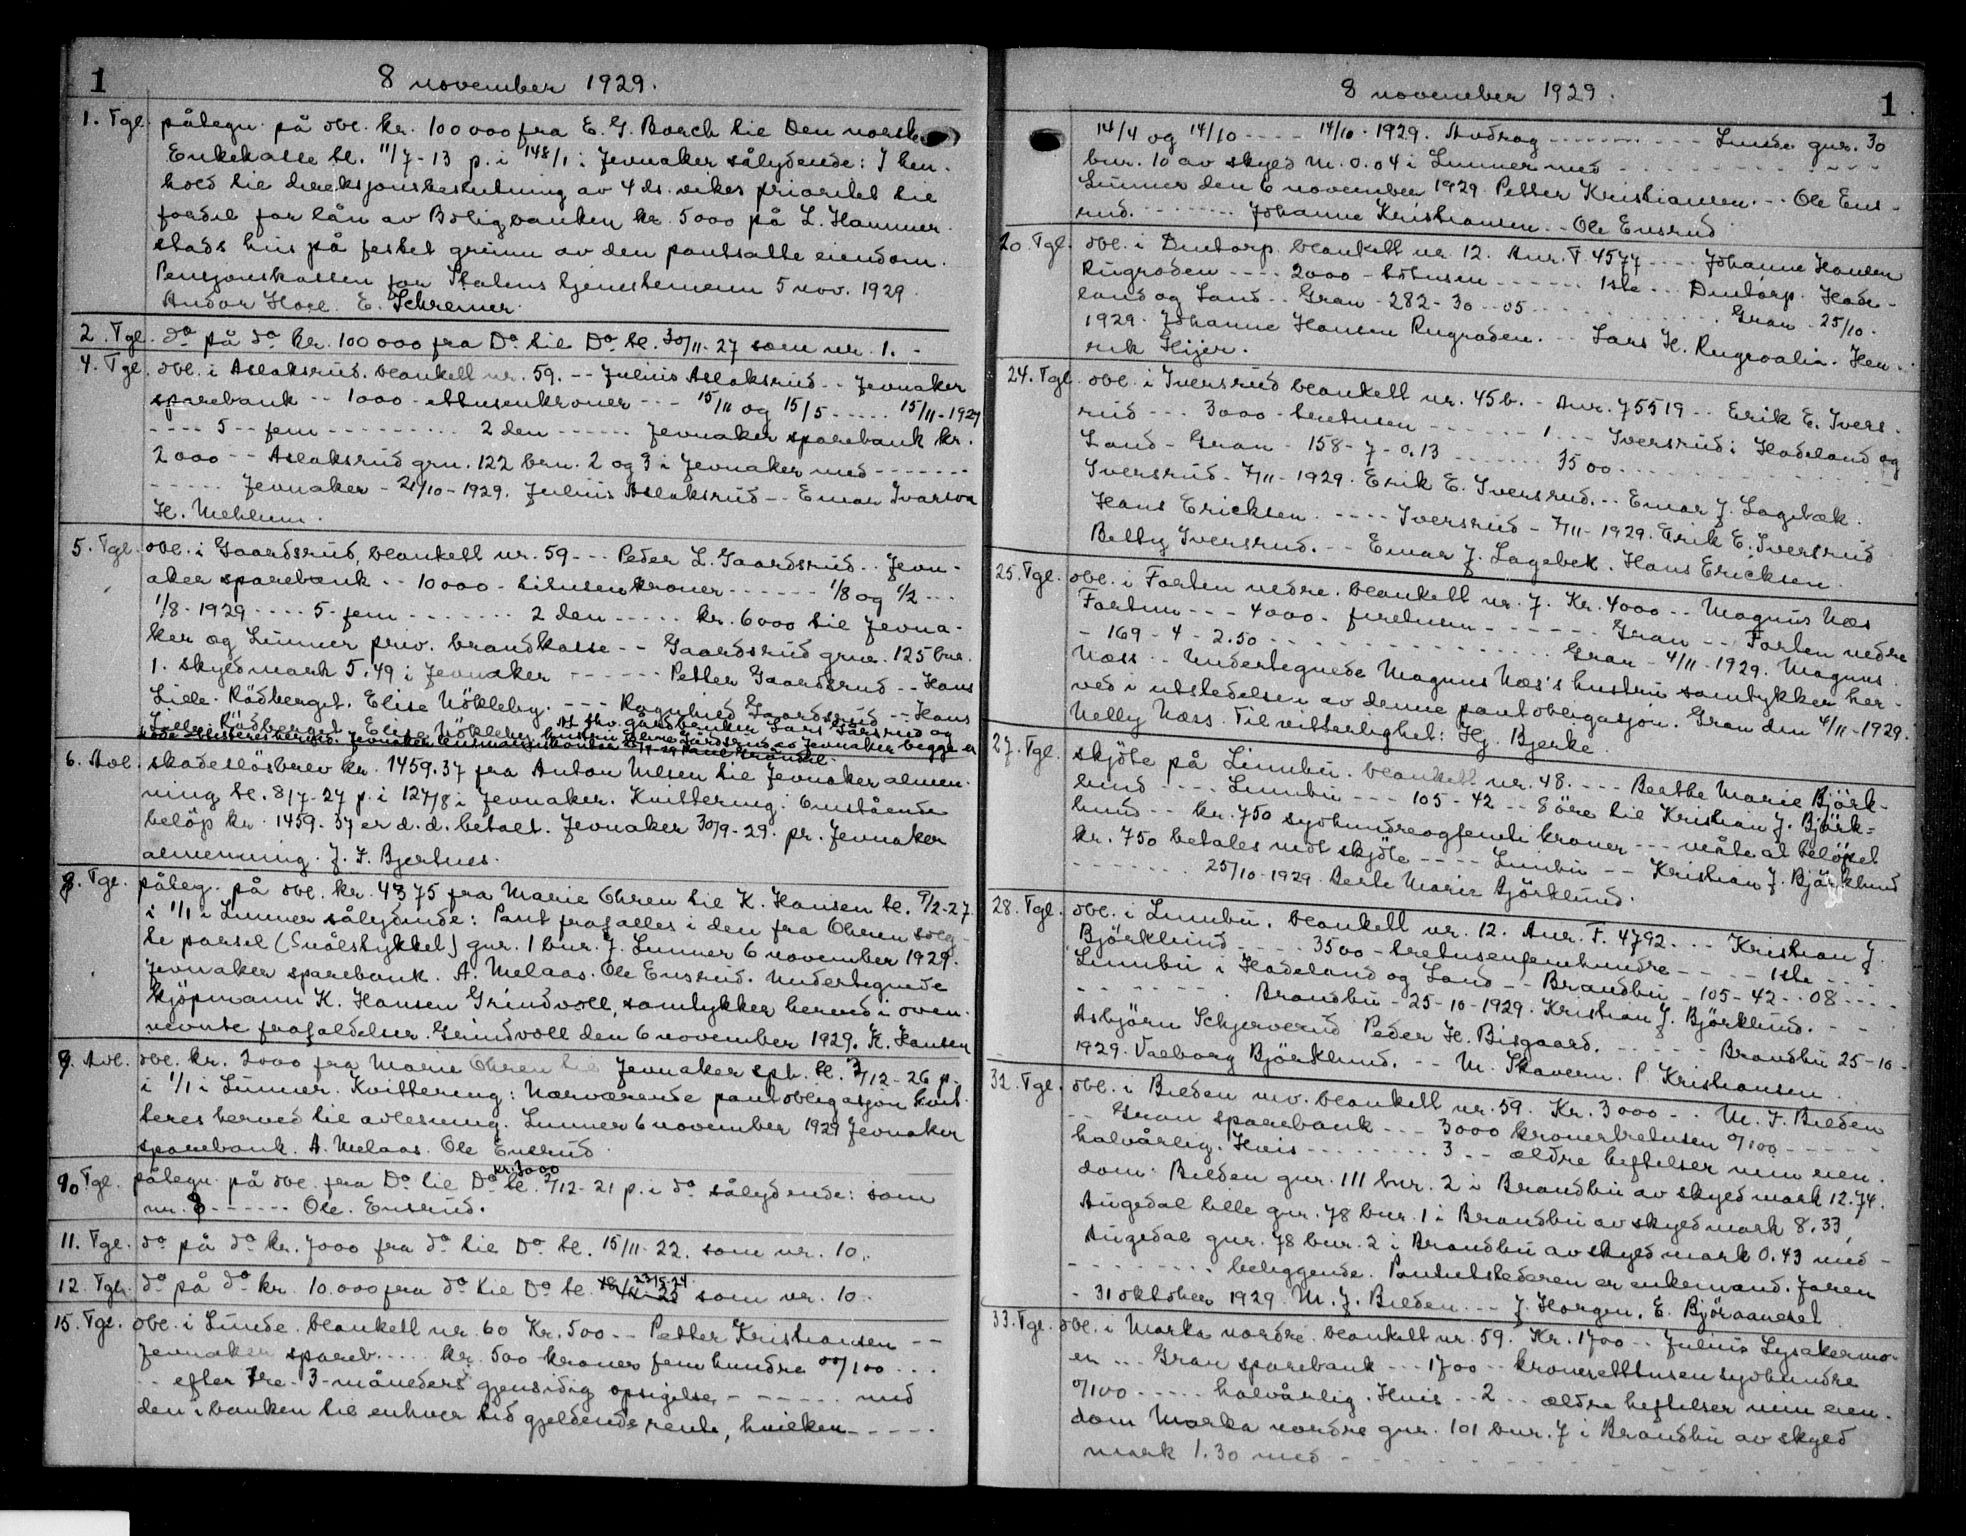 1
8 november 1929.
1. Tgl. påtegn. på obl. kr. 100 000 fra E. G. Borch til Den norske
Enkekasse tl. 11/7-13 p. i 148/1 i Jevnaker sålydende: I hen-
hold til direksjonsbeslutning av 4 ds. vikes prioritet til
fordel for lån av Boligbanken kr. 5000 på L. Hammer-
stads hus på festet grunn av den pantsatte eiendom.
Pensjonskassen for Statens tjenestemenn 5 nov. 1929
Andor Hoel. E. Schreiner.
2. Tgl. do på do kr. 100 000 fra Do til Do tl. 30/11-27 som nr. 1. -
4. Tgl. obl. i Aslaksrud. blankett nr. 59. -- Julius Aslaksrud -- Jevnaker
sparebank -- 1000 - ettusenkroner --- 15/11 og 15/5 ----- 15/11-1927
---- 5 -- fem --------- 2 den ------ Jevnaker sparebank kr.
2000 -- Aslaksrud grn. 122 brn. 2 og 3 i Jevnaker med -------
----- Jevnaker - 21/10-1929. Julius Aslaksrud -- Einar Ivarson
H. Mehlum.
5. Tgl. obl. i Gaardsrud, blankett nr. 59 --- Peder L. Gaardsrud .. Jevn-
aker sparebank -- 10000 - titusenkroner ------ 1/8 og 1/2 ---
1/8-1929 ---- 5 - fem ------- 2 den ----- kr. 6000 til Jevna-
ker og Lunner priv. brandkasse -- Gaardsrud grnr. 125 bnr.
1. skyldmark 5.49 i Jevnaker ------ Petter Gaardsrud -- Hans
Lille-Rådberget. Elise Nökleby. --- Ragnhild Gaardsrud -- Hans
Lille-Rådberget. Elise Nökleby. At skv. gårdbruker Lars Gårdsrud og
hustru Gårdsrud av Jevnaker begge er
Jevnaker lensmannskontor
6. Avl. skadeslösbrev kr. 1459.37 fra Anton Nilsen til Jevnaker almen-
ning tl. 8/7-27 p. i 127/8 i Jevnaker. Kvittering: Omstående
belöp kr. 1459.37 er d.d. betalt. Jevnaker 30/9-29. pr. Jevnaker
almenning. J. F. Bjertnes.
8. Tgl. påteg. på obl. kr. 4375 fra Marie Ohren til K. Hansen tl. 9/2-27
i 1/1 i Lunner sålydende: Pant frafalles i den fra Ohren solg-
te parsel (Snålstykket) gnr. 1 bnr. 7. Lunner 6 november 1929.
Jevnaker sparebank. A. Melaas. Ole Ensrud. Undertegnede
kjöpmann K. Hansen Grindvoll, samtykker herved i oven-
nevnte frafaldelser. Grindvoll den 6 november 1929. K. Hansen
9. Avl. obl. kr. 2000 fra Marie Ohren til Jevnaker spb. tl. 3/12-26 p.
i 1/1 i Lunner. Kvittering: Nærværende pantobligasjon kvit-
teres herved til avlesning. Lunner 6 november 1929 Jevnaker
sparebank. A. Melaas. Ole Ensrud.
10 Tgl. påtegn. på obl. fra Do til Do kr. 7000 tl. 2/12-21 p. i do sålydende: som
nr. 8 ------ Ole. Ensrud.
11. Tgl. do på do kr. 7000 fra do til Do tl. 15/11-22. som nr. 10.
12. Tgl. do på do kr. 10.000 fra do til Do tl. 23/5-24 som nr. 10.
15. Tgl. obl. i Lunde. blankett nr. 60 Kr. 500 -- Petter Kristiansen --
Jevnaker spareb. ---- kr. 500 kroner femhundre 00/100 ---
-- efter tre - 3 - måneders gjensidig opsigelse ------ med
den i banken til enhver tid gjeldende rente, hvilken -----
8 november 1929.
1
14/4 og 14/10 ---- 14/10-1929. Avdrag ---------- Lunde gnr. 30
bnr. 10 av skyld m. 0.04 i Lunner med ----------
Lunner den 6 november 1929. Petter Kristiansen. -- Ole Ens-
rud. -------- Johanne Kristiansen -- Ole Ensrud
20. Tgl. obl. i Dntorp. blankett nr. 12. Anr. F 4577 ---- Johanne Hansen
Rugroden ---- 2000 - totusen ------ 1ste -- Dntorp. Hade-
land og Land -- Gran - 282 - 30 - 05 ---------- Gran - 25/10-
1929. Johanne Hansen Rugroden. -- Lars H. Rugroalin. Hen-
rik Hijer.
24. Tgl. obl. i Iversrud blankett nr. 45b. - Anr. 75519 -- Erik E. Ivers-
rud --- 3000 - tretusen ------ 1 --- Iversrud i Hadeland og
Land - Gran - 158 - 7 - 0.13 ------ 3500 ----------
Iversrud - 7/11-1929. Erik E. Iversrud. -- Einar J. Lagebæk.
Hans Ericksen ---- Iversrud - 7/11-1929. Erik E. Iversrud
Betty Iversrud. -- Einar J. Lagebek. Hans Ericksen.
25. Tgl. obl. i Forten nedre. blankett nr. 7. Kr. 4000 -- Magnus Næs
Forten --- 4000 - firetusen ------ Gran --- Forten nedre
- 169 - 4 - 2.50 -------------- Gran - 4/11-1929. Magnus
Næss -- Undertegnede Magnus Næs's hustru samtykker her-
ved i utstedelsen av denne pantobligasjon. Gran den 4/11-1929.
Nelly Næss. Til vitterlighet: Hj. Bjerke.
27. Tgl. skjöte på Linnbu. blankett nr. 48. ---- Berthe Marie Björk-
lund ---- Linnbu --- 105 - 42 -- 8 öre til Kristian J. Björk-
lund -- kr. 750 syvhundreogfemti kroner --- måte at belöpet
kr. 750 betales mot skjöte ---- Linnbu -- Kristian J. Björklund
------ 25/10-1929. Berte Marie Björklund.
28. Tgl. obl. i Linnbu. blankett nr. 12. Anr. F. 4792. --- Kristian J.
Björklund ---- 3500 - tretusenfemhundre ---- 1ste ----
Linnbu i Hadeland og Land -- Brandbu - 105 - 42 -- 08 ----
------ Brandbu - 25-10-1929. Kristian J. Björklund. ---
Asbjörn Schjerverud Peder H. Bisgaard. ----- Brandbu 25-10-
1929. Valborg Björklund. -- M. Skavern. P Kristiansen
32. Tgl. obl. i Bilden mv. blankett nr. 59. Kr. 3000 -- M. J. Bilden
-- Gran sparebank --- 3000 kronertretusen 0/100 ------
halvårlig. Hvis -------- 3 -- ældre heftelser min eien-
dom. Bilden gnr. 111 bnr. 2 i Brandbu av skyldmark 12.74.
Augedal lille gnr. 78 bnr. 1 i Brandbu av skyldmark 8.33,
Augedal gnr. 78 bnr. 2 i Brandbu av skyldmark 0.43 med -
-------- beliggende. Pantutstederen er enkemand. Jaren
- 31 oktober 1929. M. J. Bilden --- J. Horgen. E. Björaaneset.
33. Tgl. obl. i Marka nordre. blankett nr. 59. Kr. 1700 -- Julius Lysakermo-
en --- Gran sparebank --- 1700 -- kronerettusensyvhundre
0/100 ----- halvårlig. Hvis -- 2 -- ældre heftelser min eien-
dom Marka nordre gnr. 101 bnr. 7 i Brandbu av skyld
mark 1.30 med ----------